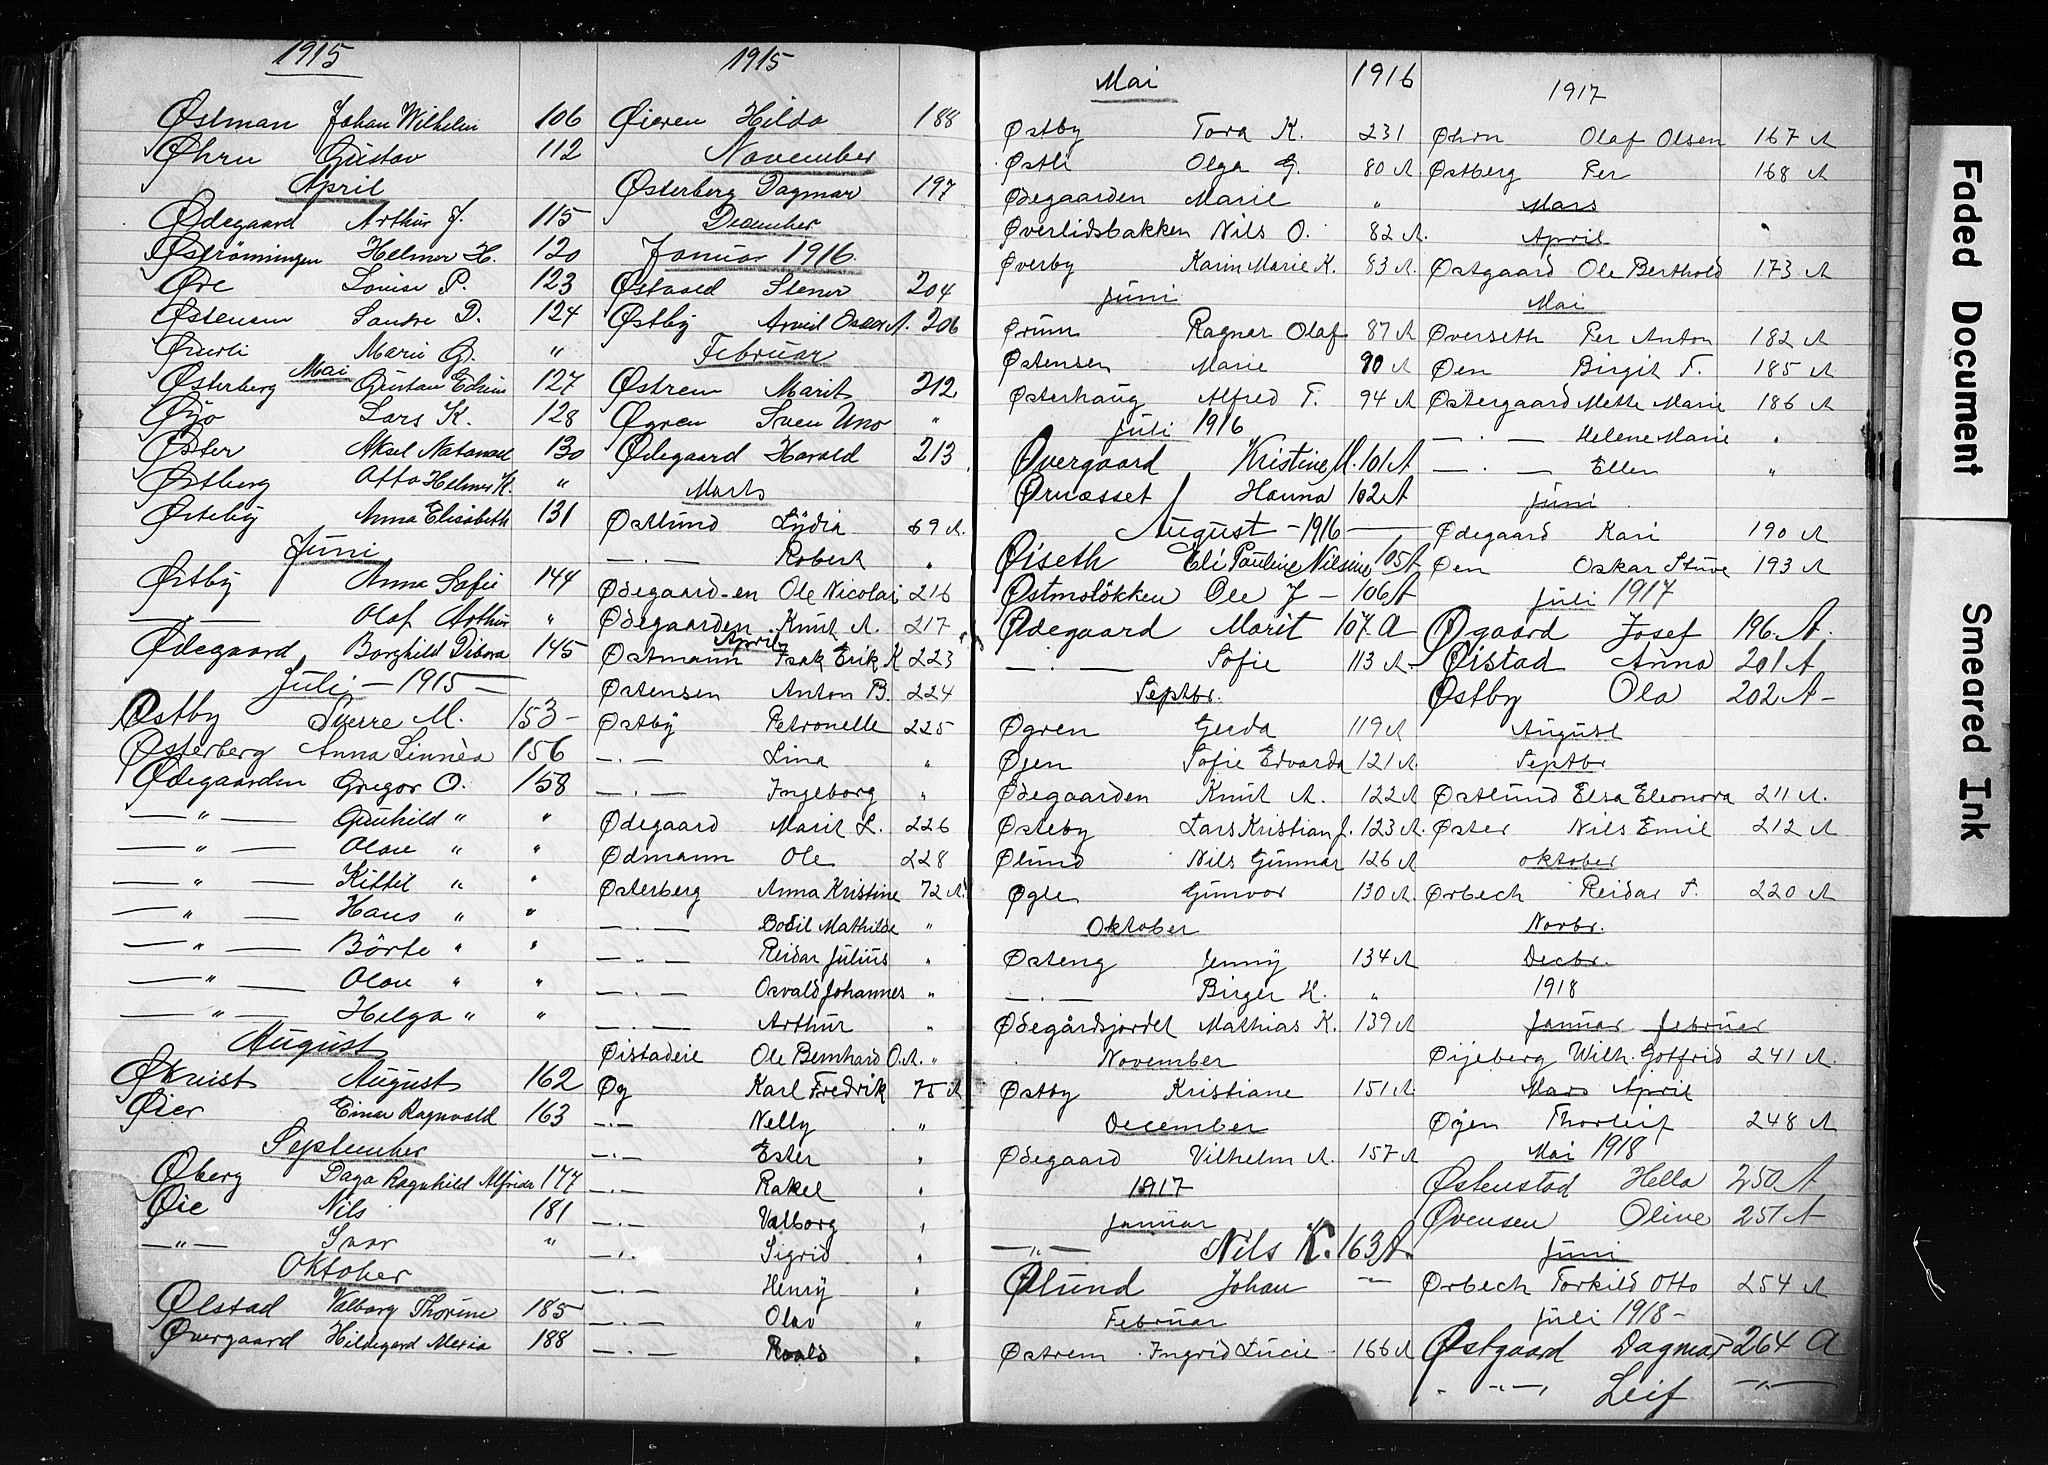 1915
Östman Johan Wilhelm 106
Øhrn Gustav 112
April
Ødegaard Arthur J. 115
Øströnningen Helmer H. 120
Øre Louise P. 123
Østensen Sandre D. 124
Marie G. "
Mai
Østerberg Gustav Edvin 127
Øyo Lars K. 128
Øster Aksel Natanael 130
Østberg Otto Helmer K. "
Østeby Anna Elisabeth 131
Juni
Østby Anna Sofie 144
— — Olaf Arthur "
Ødegaard Borghild Debora 145
Juli — 1915 —
Østby Sverre M. 153 -
Østerberg Anna Linnèa 156
Ødegaarden Gregor O. 158
— " — Gunhild " "
— " — Olav " "
— " — Kittil " "
— " — Hans " "
— " — Börte " "
— " — Olav " "
— " — Helga " "
August
Økvist August 162
Øier Einar Ragnvald 163
September
Øberg Daga Ragnhild Alfrida 177
Øie Nils 181
— " — Ivar "
Oktober
Ølstad Valborg Thorine 185
Øvergaard Hildegard Alexia 188
1915
Øieren Hilda 188
November
Østerberg Dagmar 197
December
Januar 1916.
Østvold Stener 204
Østby Arvid Oscar A. 206
Februar
Østrem Marit 212
Øgren Sven Uno "
Ødegaard Harald 213
Marts
Østlund Lydia 69 A.
— . — Robert "
Ødegaard-en Ole Nicolai 216
Ødegaarden Knut A. 217
April
Østmann Isak Erik K 223
Østensen Anton B. 224
Østby Petronelle 225
— . — Lina "
— . — Ingeborg "
Ødegaard Marit L. 226
Ødmann Ole 228
Østerberg Anna Kristine 72 A.
— . — Bodil Mathilde "
— . — Reidar Julius "
— . — Osvald Johannes "
— . — Arthur "
Øistadeie Ole Bernhard O.A. "
Øg Karl Fredrik 75 A
— . — Nelly "
— . — Ester "
— . — Rakel "
— . — Valborg "
— . — Sigrid "
— . — Henry "
— . — Olav "
— . — Roald "
Mai 1916
Østby Tora K. 231
Østli Olga G. 80 A
Ødegaarden Marie "
Øverlidsbakken Nils O. 82 A.
Øverby Karin Marie K. 83 A.
Juni
Ørum Ragnar Olaf 87 A
Østensen Marie 90 A
Østerhaug Alfred T. 94 A
Juli 1916
Øvergaard Kristine M. 101 A
Ørnæsset Hanna 102 A
August - 1916 —
Øiseth Eli Pauline Nilsine 105 A
Østmsløkken Ole J - 106 A
Ødegaard Marit 107. A
— . — Sofie 113 A
Septbr.
Øgren Gerda 119 A
Øyen Sofie Edvarda 121 A.
Ødegaarden Knut A. 122 A
Østeby Lars Kristian J. 123 A.
Ølund Nils Gunnar 126 A
Øgle Gunvor 130 A.
Oktober
Østeng Jenny 134 A
— . — Birger K. "
Ødegårdsjordet Mathias K. 139 A
November
Østby Kristiane 151 A
December
Ødegaard Vilhelm A. 157 A
1917
Januar
— " — Nils K. 163 A
Ølund Johan — " —
Februar
Østrem Ingrid Lucie 166 A
1917
Øhrn Olaf Olsen 167 A
Østberg Per 168 A
Mars
April
Østgaard Ole Berthold 173 A
Mai
Øverseth Per Anton 182 A
Øen Birgit T. 185 A
Østergaard Mette Marie 186 A
— . — Helene Marie "
— . — Ellen "
Juni
Ødegaard Kari 190 A
Øen Oskar Stuve 193 A
Juli 1917
Øgaard Josef 196. A.
Øistad Anna 201 A
Østby Ola 202 A -
August
Septbr
Østlund Elsa Eleonora 211 A.
Øster Nils Emil 212 A
Oktober
Ørbech Reidar T. 220 A
Novbr.
Decbr.
1918
Januar Februar
Øijeberg Wilh. Gotfrid 241 A.
Mars April
Øyen Thorleif 248 A
Mai 1918
Østenstad Hella 250 A
Øvensen Olive 251 A
Juni
Ørbech Torkild Otto 254 A
Juli 1918 -
Østgaard Dagmar 264 A
" — " — Leif — " —
Faded Document
Smeared Ink